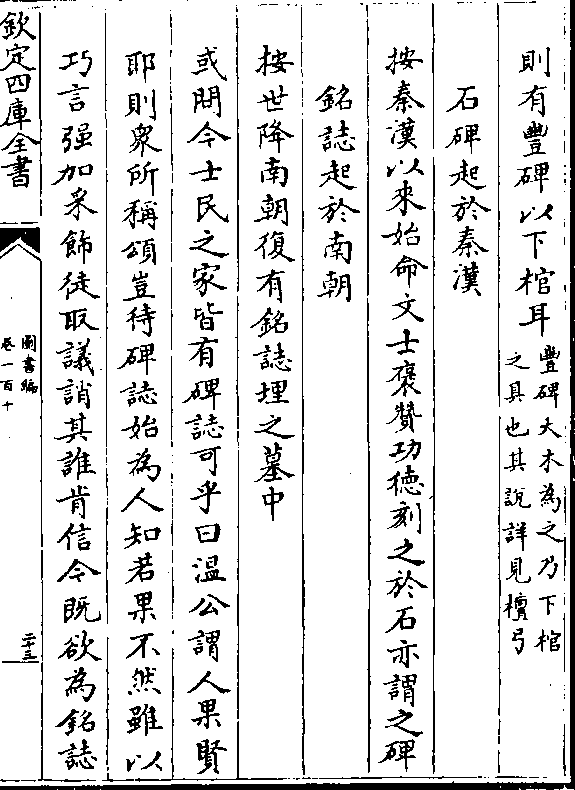 則有豐碑以下棺耳豐碑大木為之乃下棺
之具也其說詳見檀弓
石碑起於秦漢
按秦漢以來始命文士襃贊功徳刻之於石亦謂之碑
銘誌起於南朝
按世降南朝復有銘誌埋之墓中
或問今士民之家皆有碑誌可乎曰溫公謂人果賢
耶則衆所稱頌豈待碑誌始為人知若果不然雖以
巧言强加采飾徒取議誚其誰肯信今既欲為銘誌
欽定四庫全書
圖書編
卷一百十
二十三